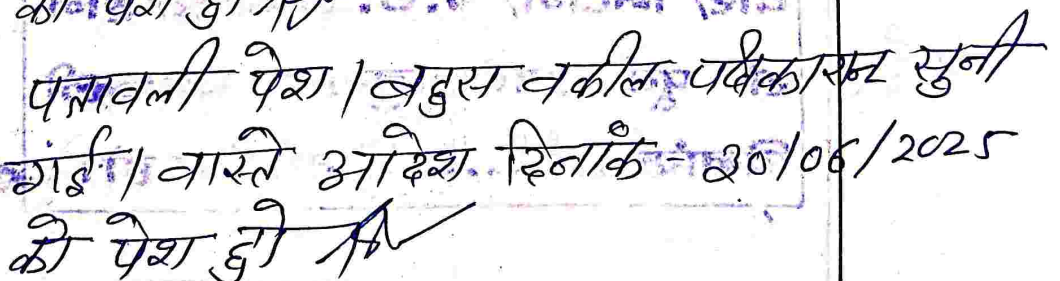 को पेश हो
पत्रावली पेश। बहस वकील पक्षकारान सुनी
गई। वास्ते आदेश दिनांक - 30/06/2025
को पेश हो